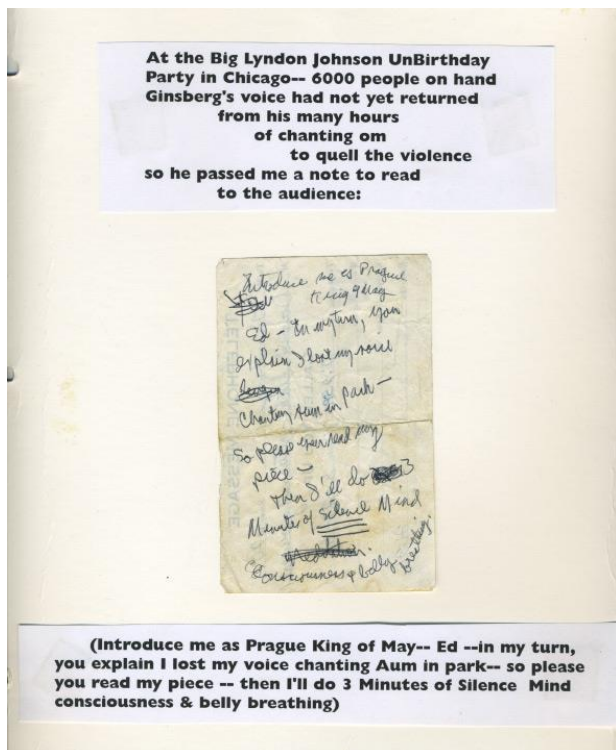 At the Big Lyndon Johnson UnBirthday
Party in Chicago-- 6000 people on hand
Ginsberg's voice had not yet returned
from his many hours
of chanting om
to quell the violence
so he passed me a note to read
to the audience:
Introduce me as Prague
King of May
Ed – In my turn, you
explain I lost my voice
Chanting Aum in Park –
So please you read my
piece –
then I'll do 3
Minutes of Silence Mind
Consciousness & belly breathing.
(Introduce me as Prague King of May-- Ed --in my turn,
you explain I lost my voice chanting Aum in park-- so please
you read my piece -- then I'll do 3 Minutes of Silence Mind
consciousness & belly breathing)